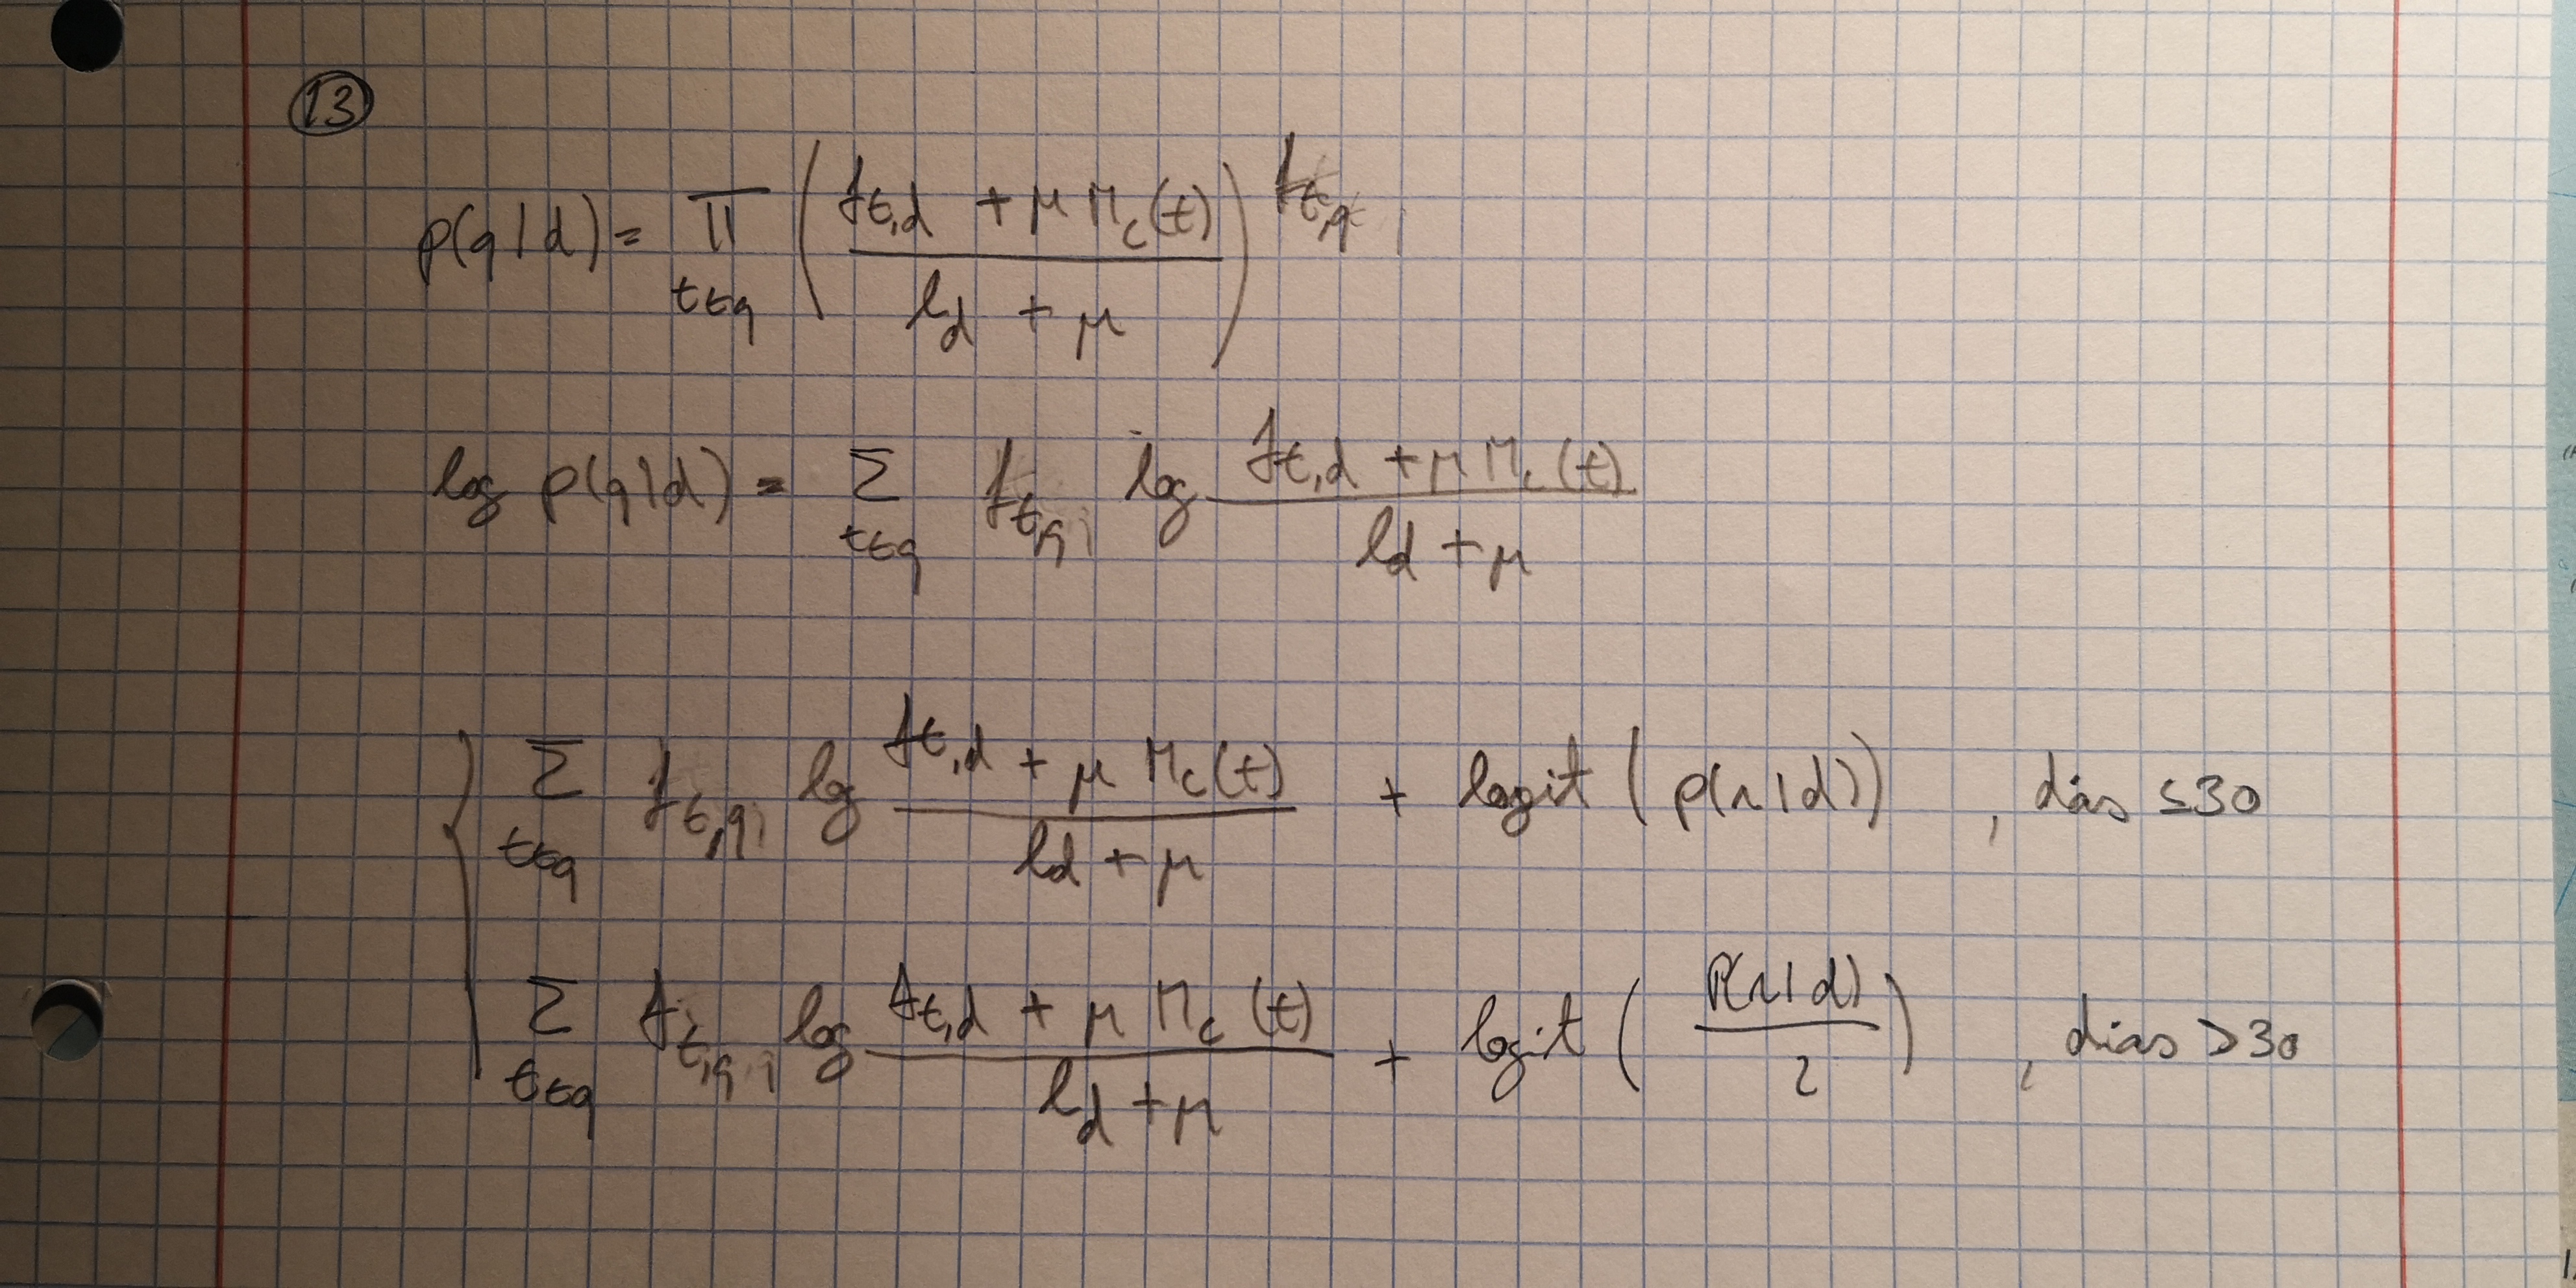 13
p(q|d) = ∏_{t∈q} ( (f_{t,d} + μ M_c(t)) / (l_d + μ) )^{f_{t,q}}
log p(q|d) = Σ_{t∈q} f_{t,q} log (f_{t,d} + μ M_c(t)) / (l_d + μ)
{ Σ_{t∈q} f_{t,q} log (f_{t,d} + μ M_c(t)) / (l_d + μ) + logit ( p(r|d) ) , dias ≤ 30
Σ_{t∈q} f_{t,q} log (f_{t,d} + μ M_c(t)) / (l_d + μ) + logit ( P(r|d) / 2 ) , dias > 30